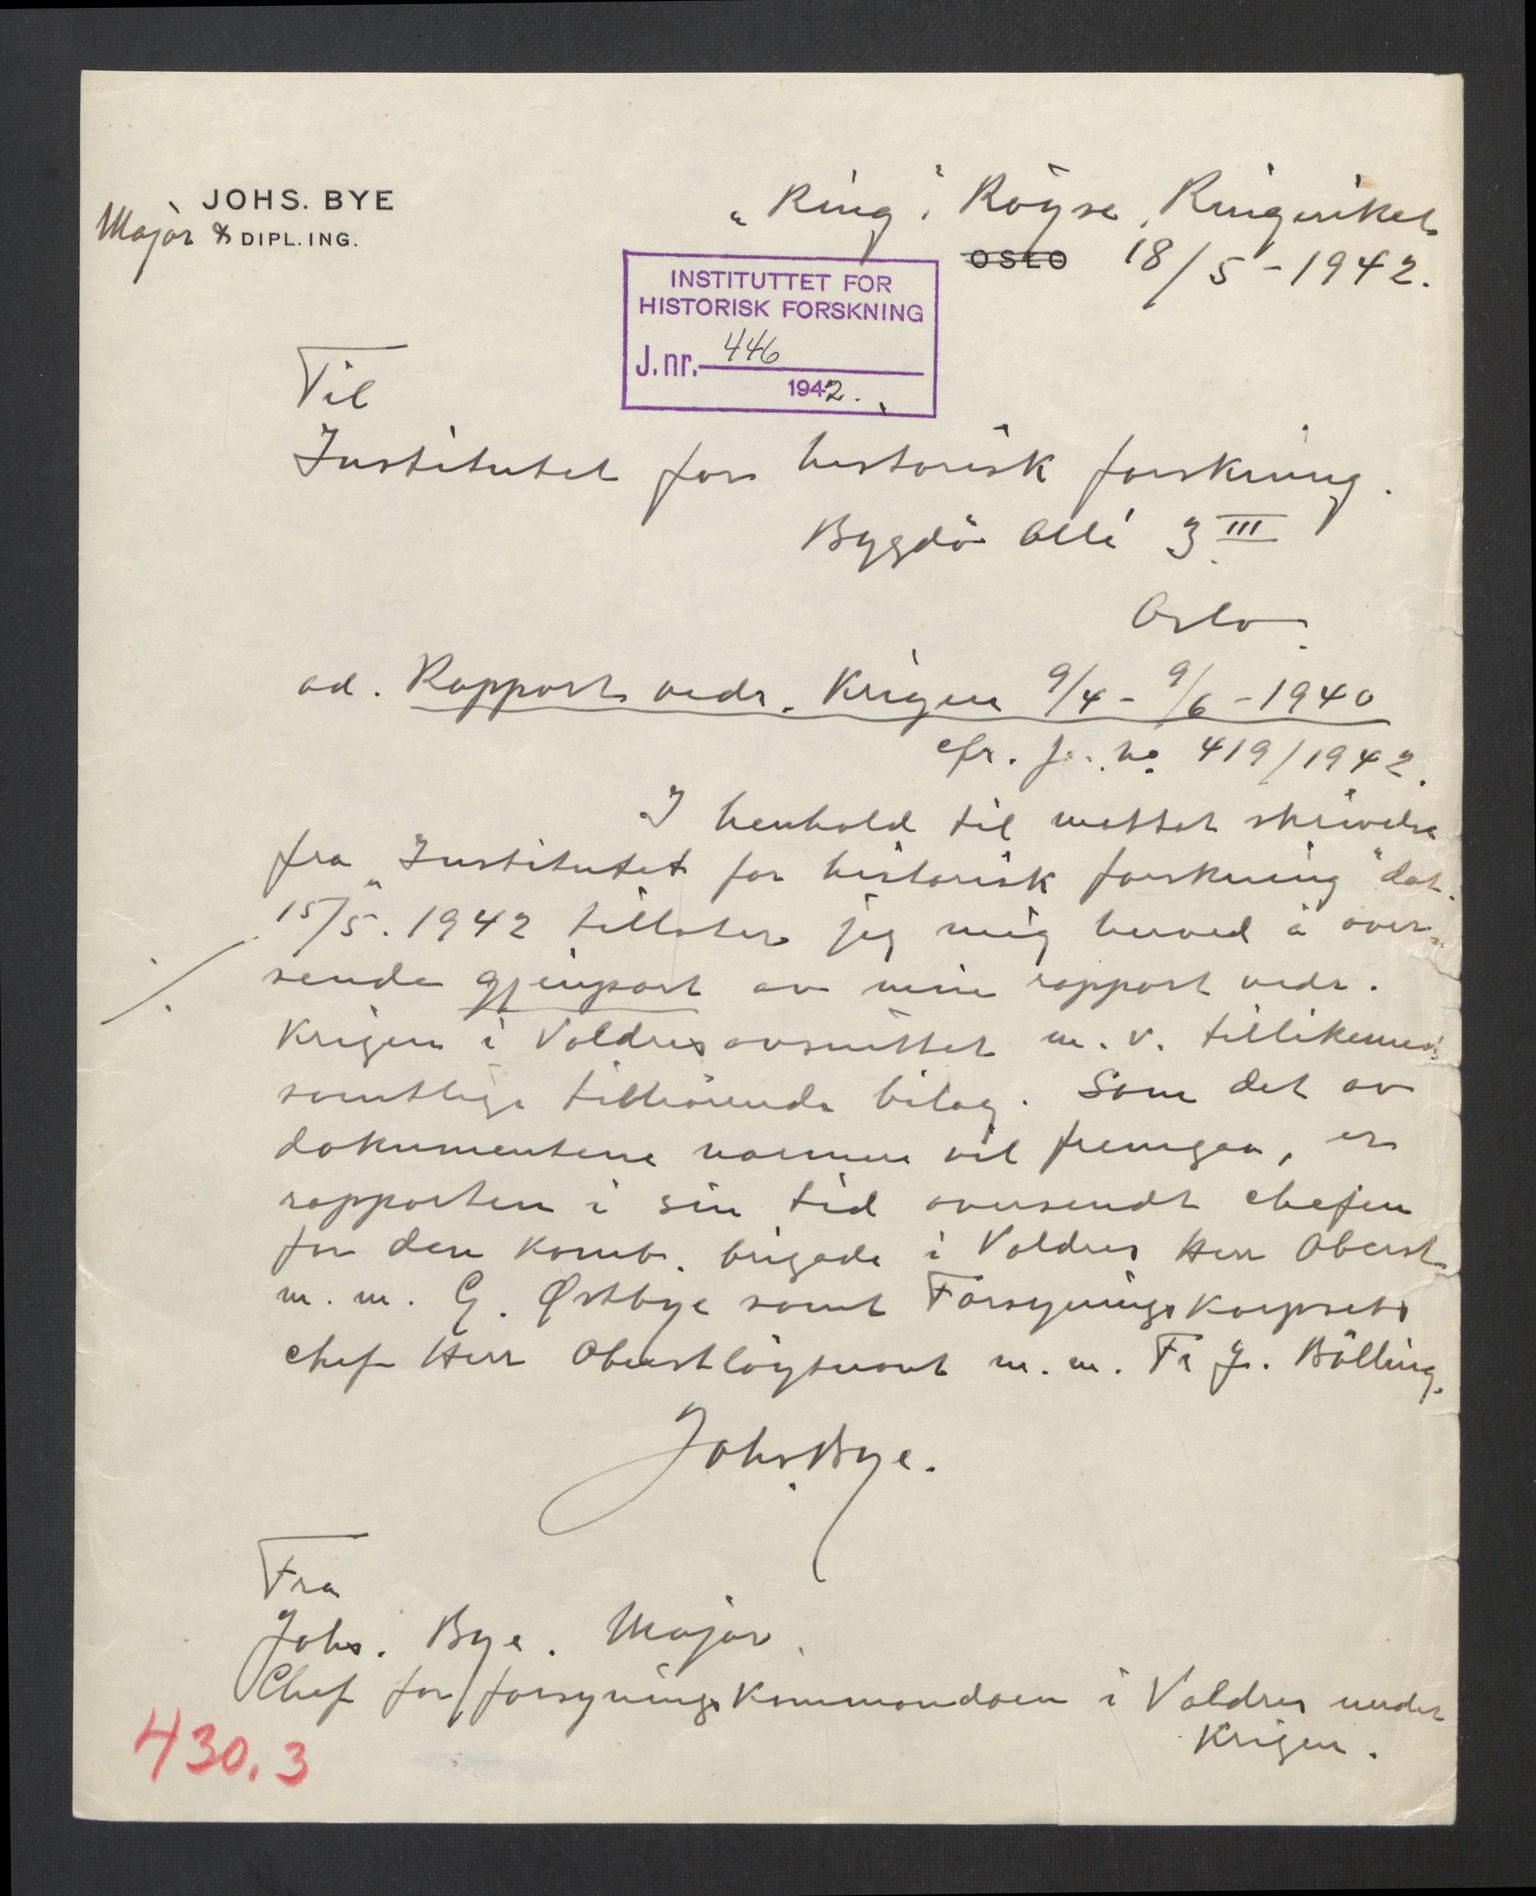 JOHS. BYE
Major & DIPL.ING.
"Ring" Röyse, Ringerike
OSLO 18/5 - 1942.
INSTITUTTET FOR
HISTORISK FORSKNING
J.nr. 446
1942.
Til
Institutet for historisk forskning.
Bygdö Allé 3 III
Oslo.
ad. Rapport vedr. Krigen 9/4 - 9/6 - 1940
cfr. j. no 419/1942.
I henhold til mottat skrivelse
fra "Institutet for historisk forskning" dat.
15/5. 1942 tillater jeg mig herved å over-
sende gjenpart av min rapport vedr.
Krigen i Valdresavsnittet m. v. tillikemed
samtlige tilhörende bilag. Som det av
dokumentene nærmere vil fremgaa, er
rapporten i sin tid oversendt chefen
for den komb. brigade i Valdres Herr Oberst
m. m. G. Østbye samt Forsyningskorpsets
chef Herr Oberstlöytnant m. m. Fr J. Bölling.
Johs. Bye.
Fra
Johs. Bye. Major.
Chef for forsyningskommandoen i Valdres under
Krigen.
430.3